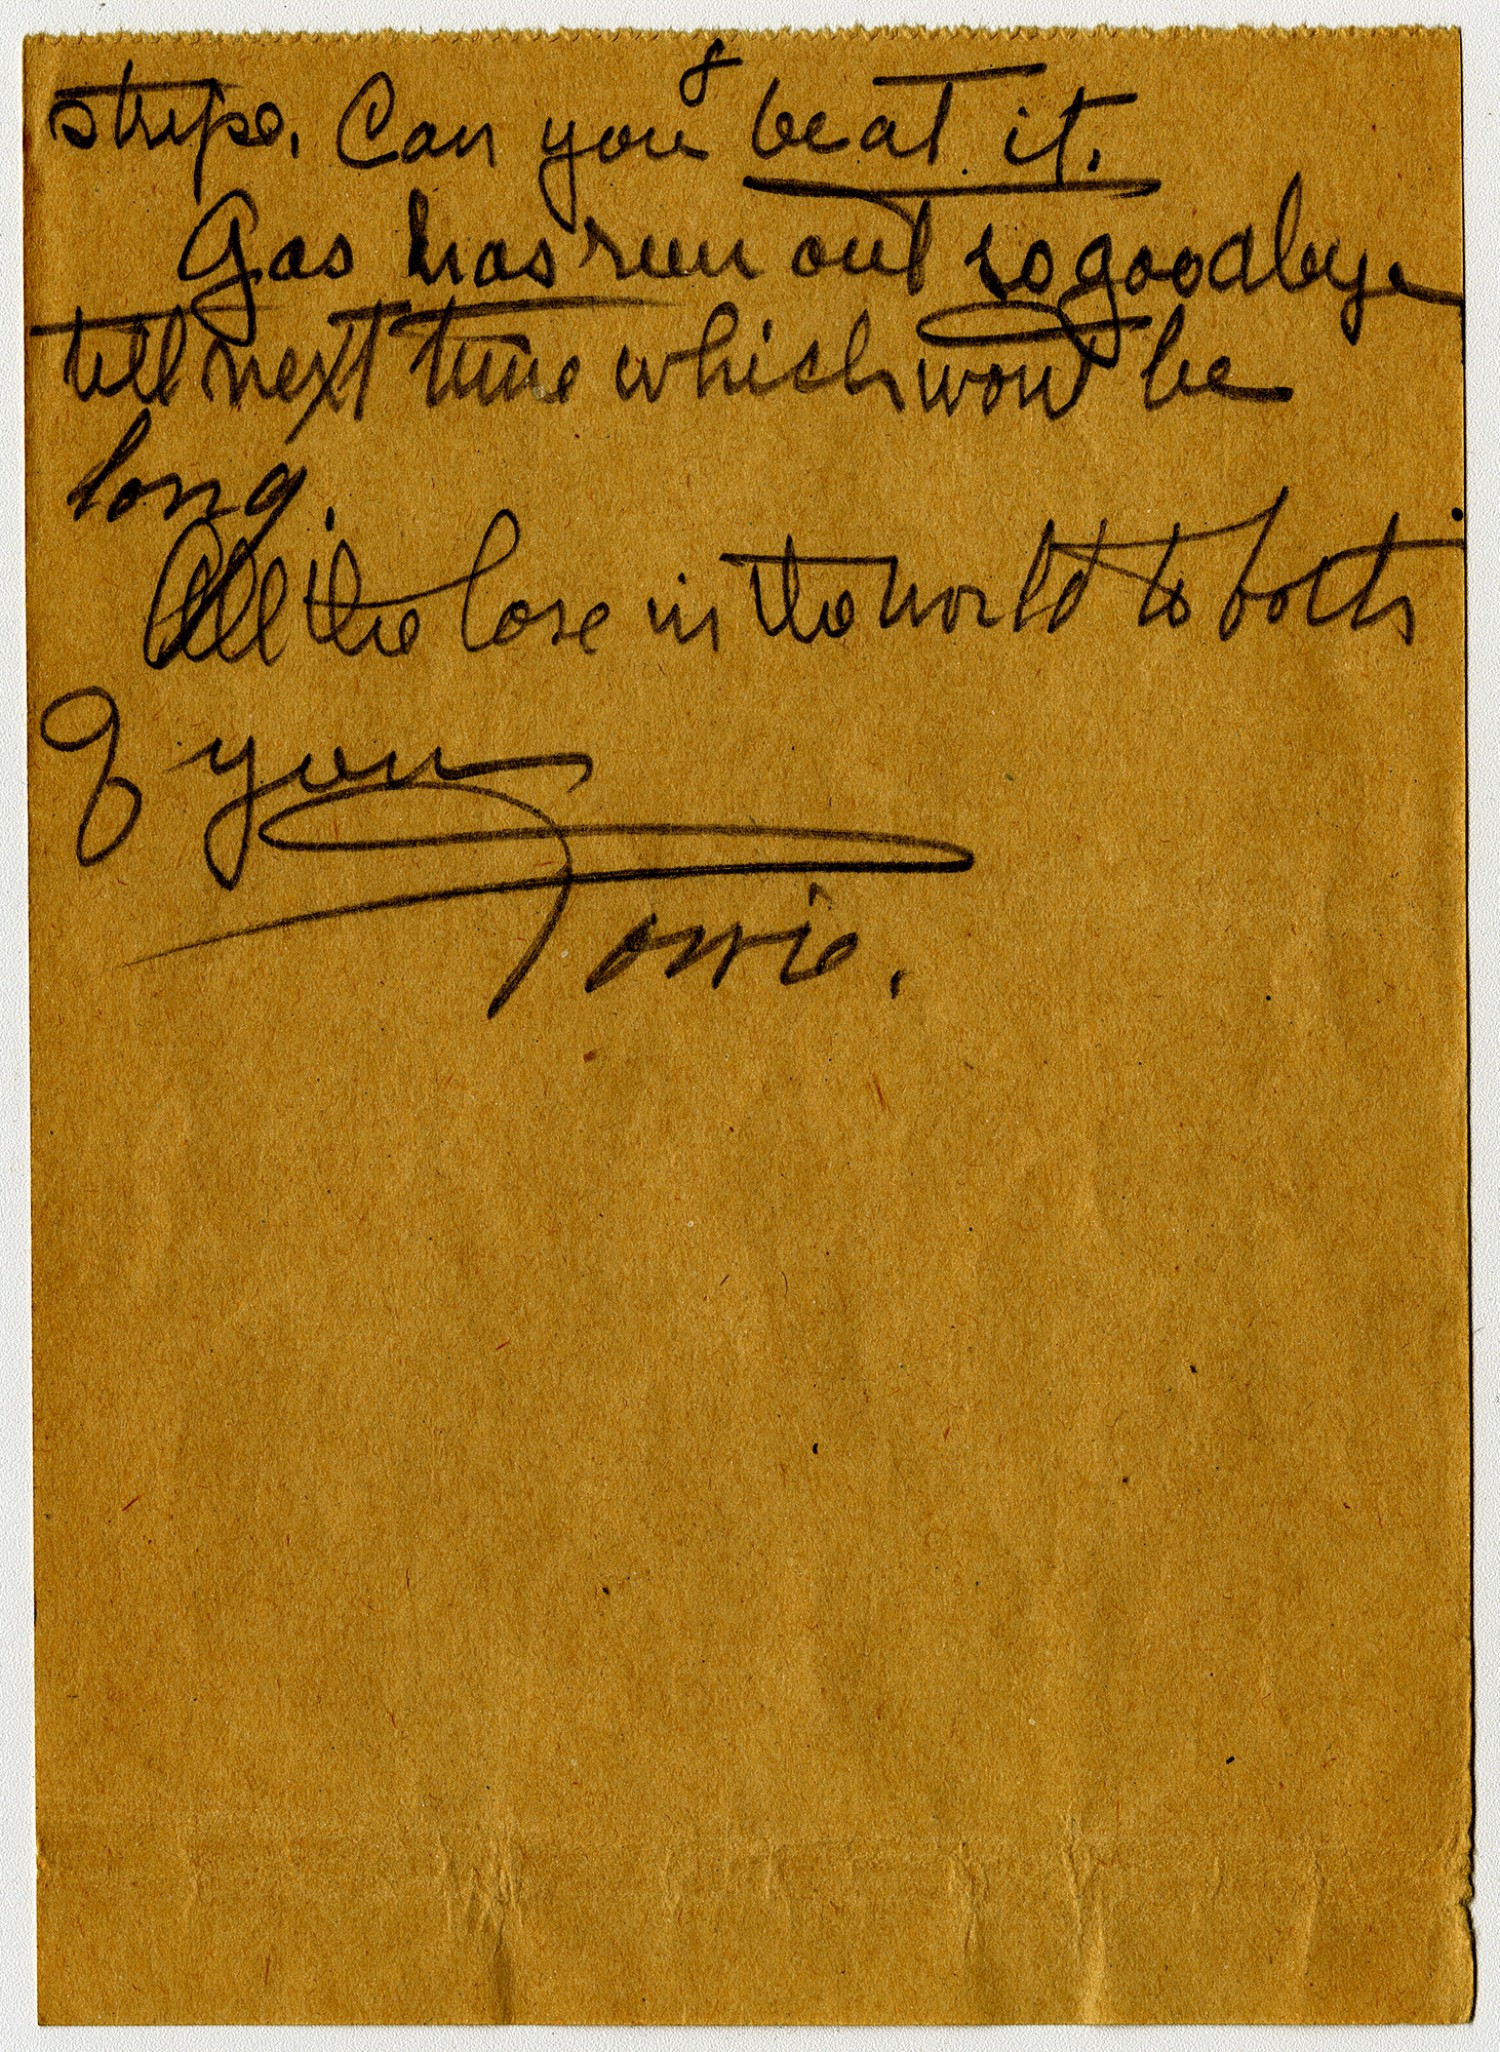 8
stripe. Can you beat it.
Gas has run out so goodbye
till next time which wont be
long.
All the love in the world to both
of you